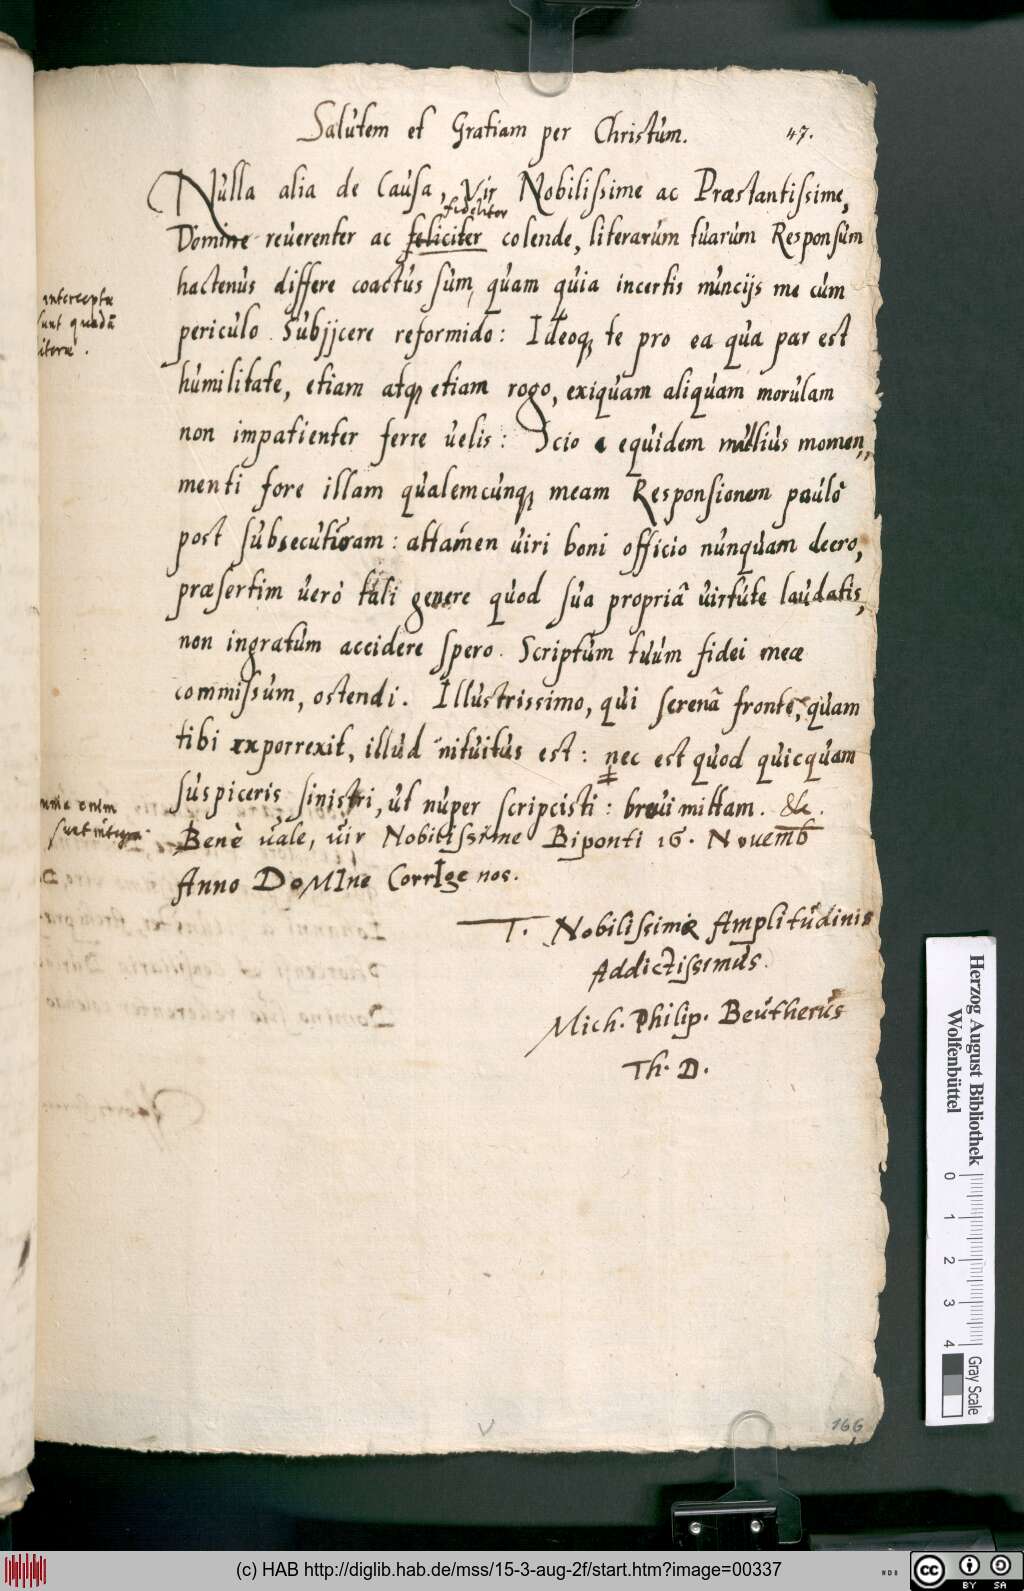 Salutem et Gratiam per Christum. 47.
Nulla alia de Causa, Vir Nobilissime ac Præstantissime,
fideliter
Domine reuerenter ac feliciter colende, literarum tuarum Responsum
hactenus differe coactus sum, quam quia incertis nuncijs me cum
periculo Subjjcere reformido: Ideoq te pro ea qua par est
humilitate, etiam atq etiam rogo, exiquam aliquam morulam
non impatienter ferre uelis: Scio equidem nullius momen„
menti fore illam qualemcunq meam Responsionem paulò
post subsecuturam: attamen uiri boni officio nunquam deero,
præsertim uerò tali genere quod sua propriâ uirtute laudatis,
non ingratum accidere spero. Scriptum tuum fidei meæ
commissum, ostendi. Illustrissimo, qui serenâ fronte, quam
tibi exporrexit, illud intuitus est: nec est quod quicquam
suspiceris sinistri, ut nuper scripcisti: breui mittam. &c.
Benè uale, uir Nobilissime Biponti 16. Nouemb
Anno DoMIne CorrIge nos.
T. Nobilissimæ Amplitudinis
Addictissimus.
Mich. Philip. Beutherus
Th. D.
intercepta
sunt quædā
literæ.
sunt integra.
166
Herzog August Bibliothek
Wolfenbüttel
0 1 2 3 4
Gray Scale
(c) HAB http://diglib.hab.de/mss/15-3-aug-2f/start.htm?image=00337
cc BY SA